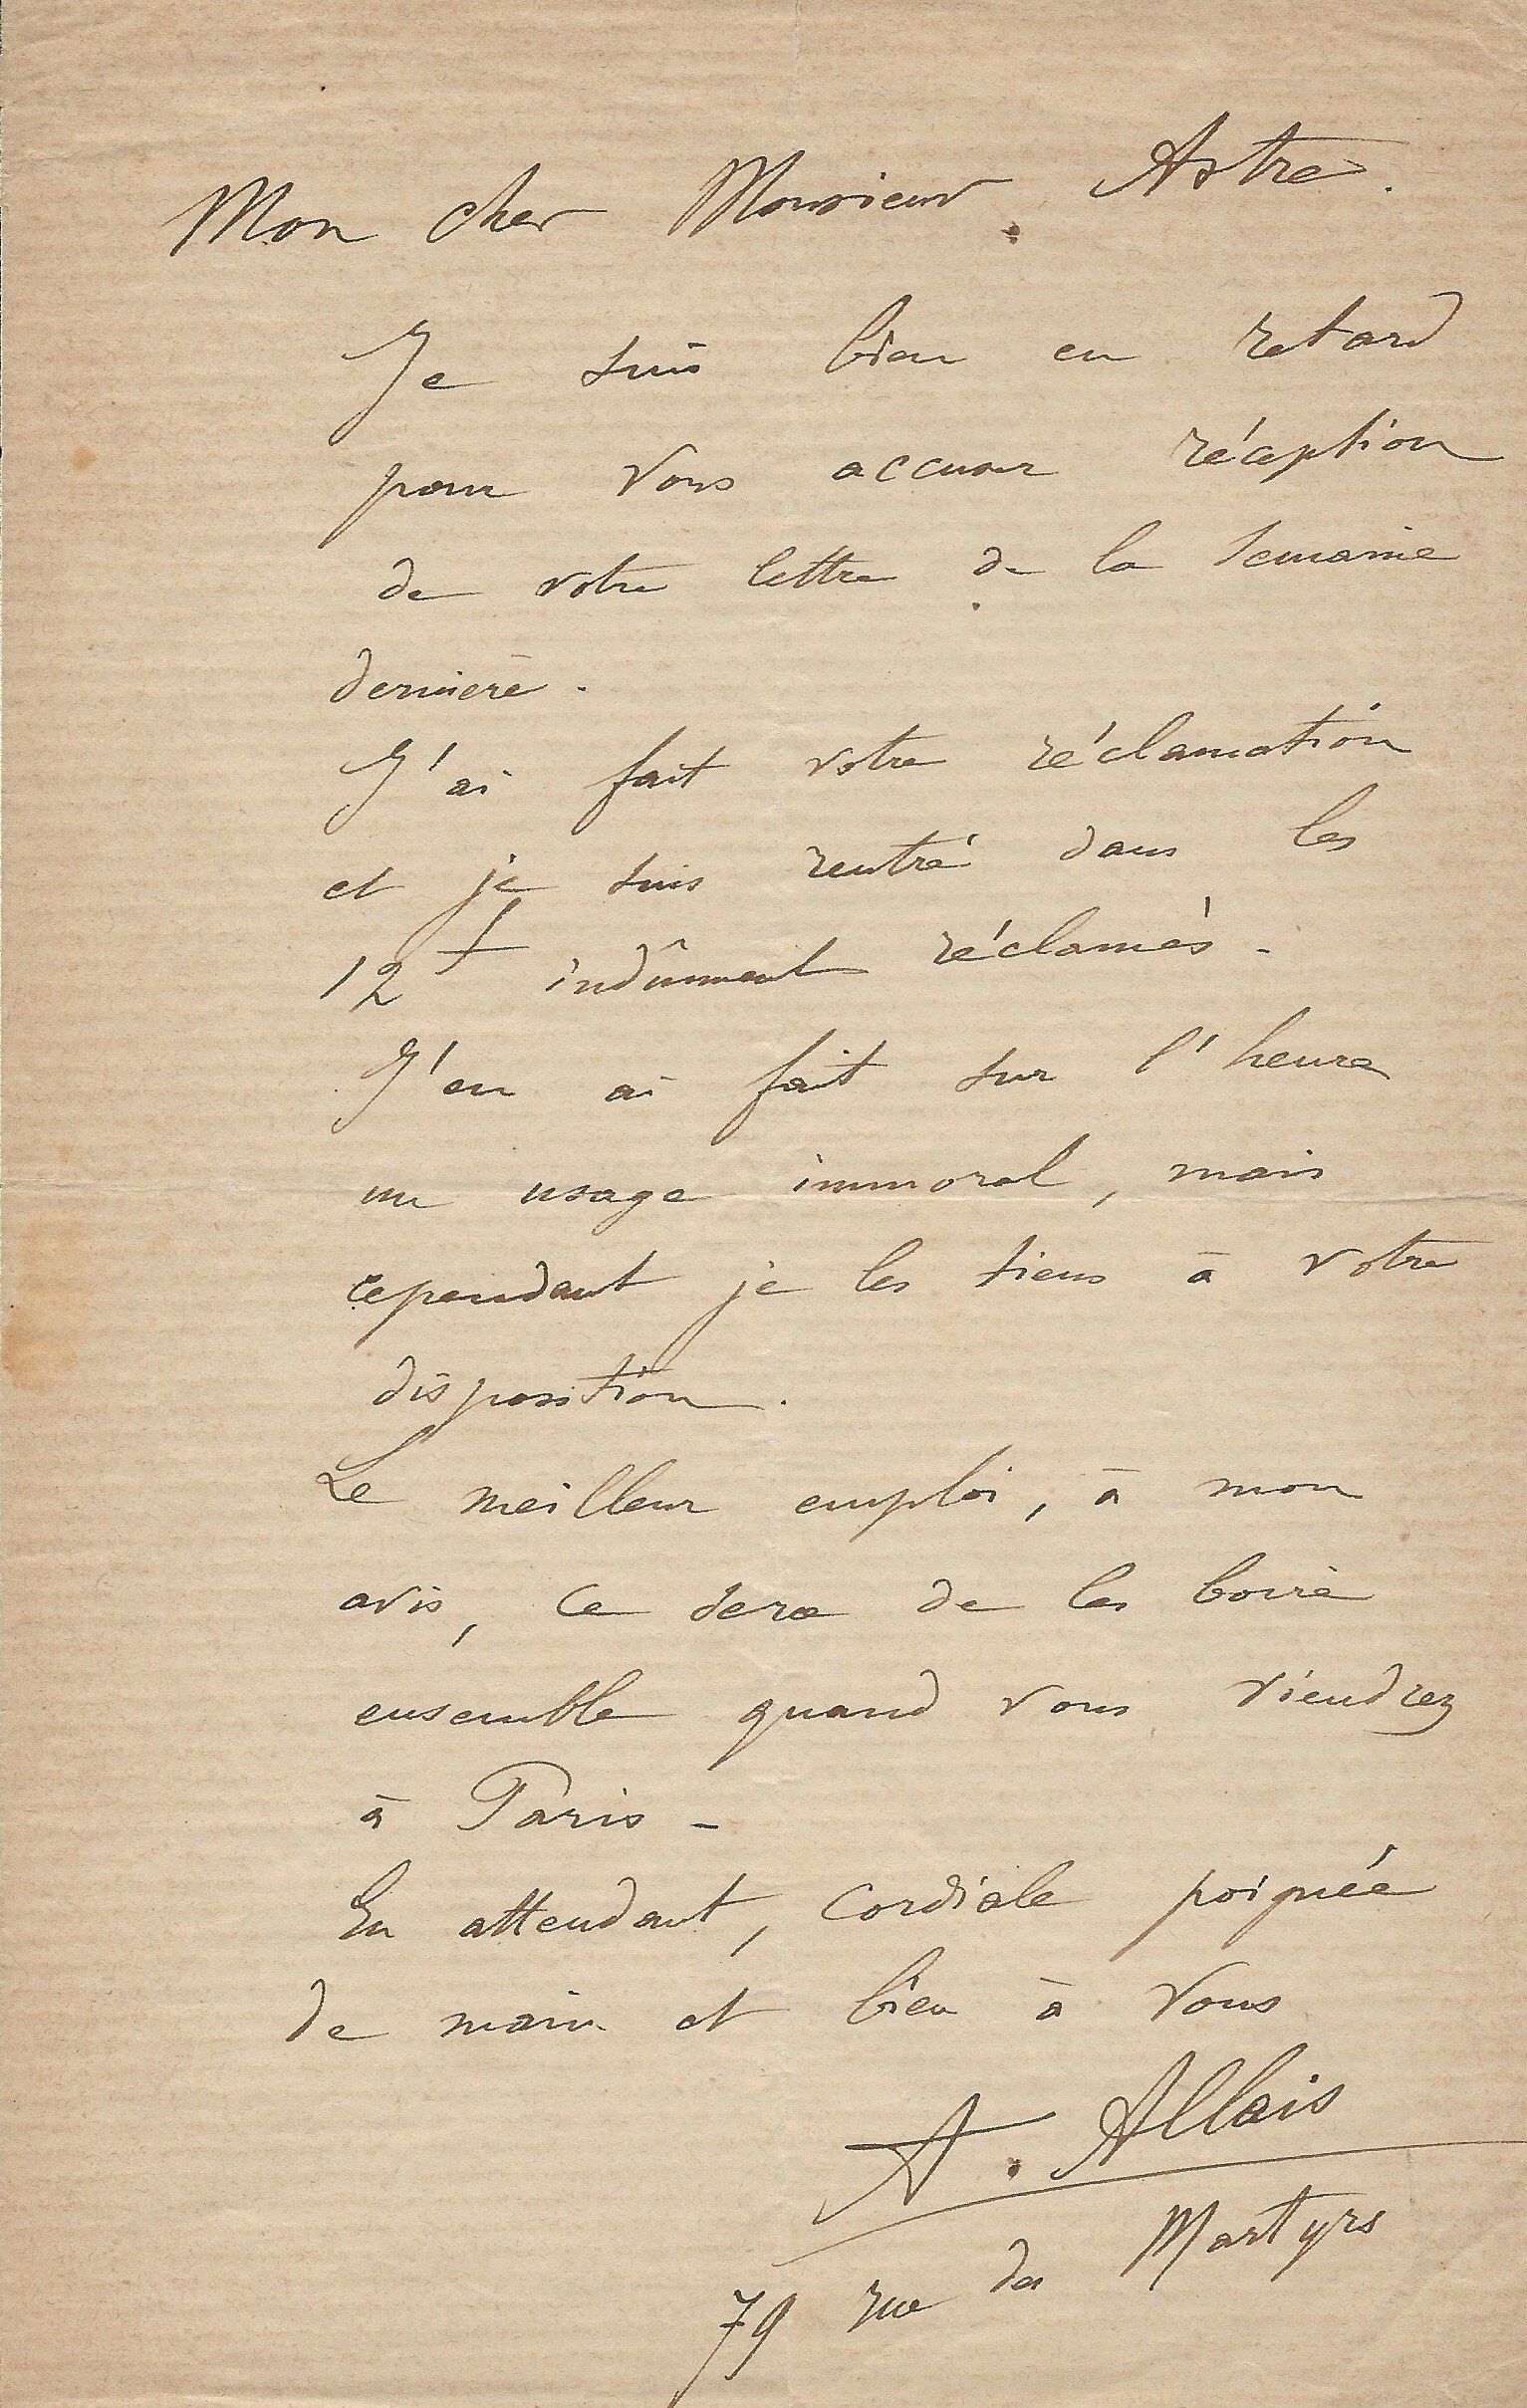 Mon cher Monsieur Astre.
Je suis bien en retard
pour vous accuser réception
de votre lettre de la semaine
dernière.
J'ai fait votre réclamation
et je suis rentré dans les
12 f indûment réclamés.
J'en ai fait sur l'heure
un usage immoral, mais
cependant je les tiens à votre
disposition.
Le meilleur emploi, à mon
avis, ce sera de les boire
ensemble quand vous viendrez
à Paris -
En attendant, cordiale poignée
de main et bien à vous
A. Allais
79 rue des Martyrs